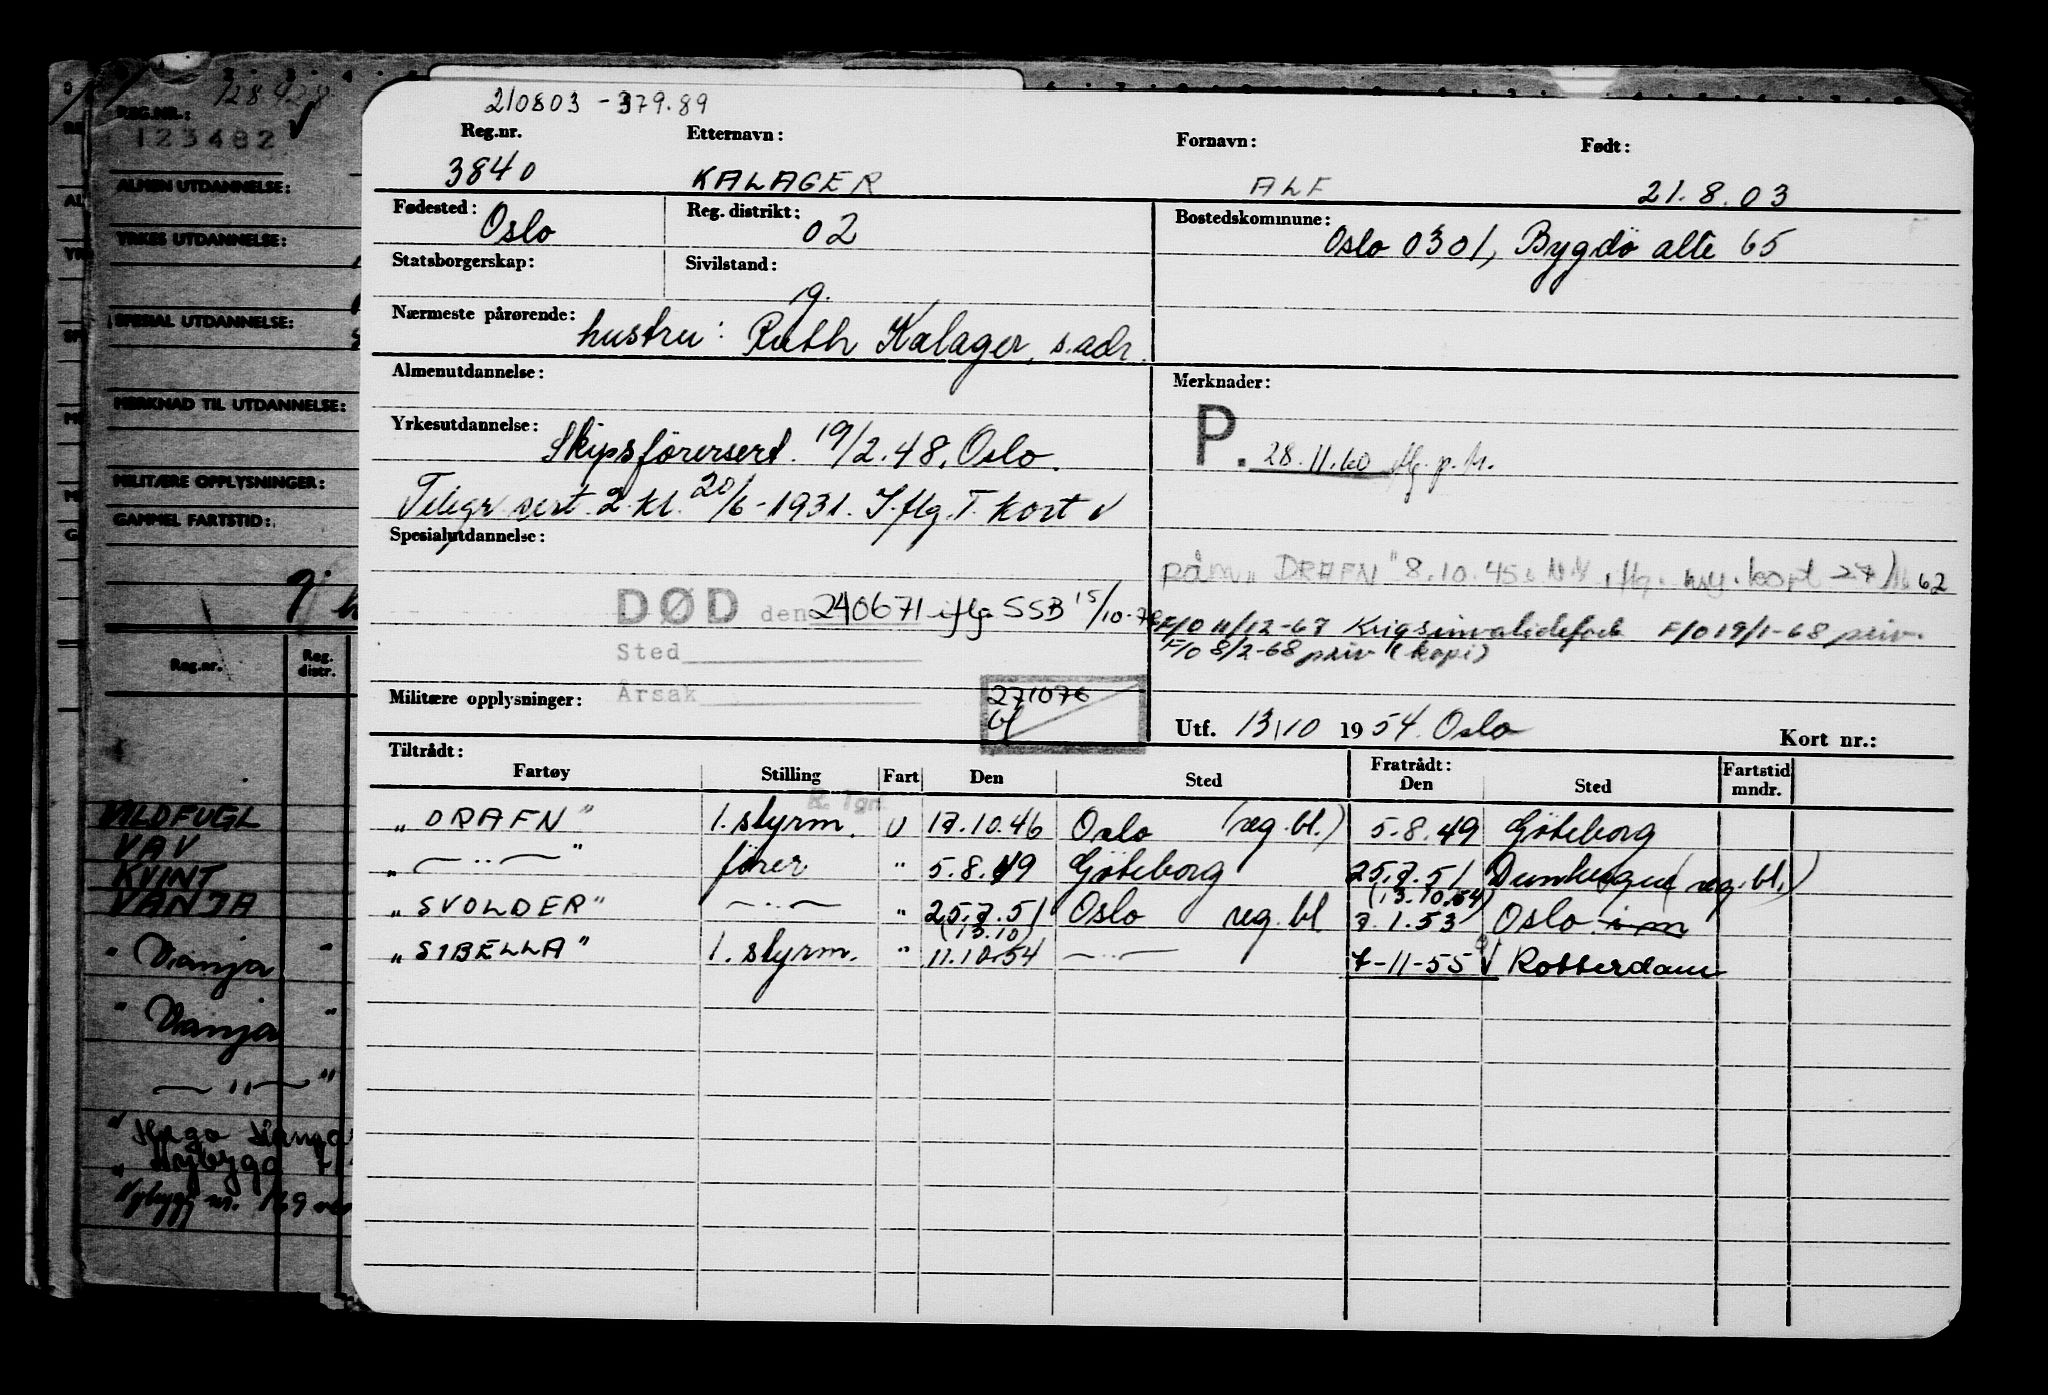 210803 - 379.89
Reg.nr. Etternavn: Fornavn: Født:
3840 KALAGER ALF 21.8.03
Fødested: Oslo Reg. distrikt: 02 Bostedskommune: Oslo 0301, Bygdö alle 65
Statsborgerskap: Sivilstand: g.
Nærmeste pårørende: hustru: Ruth Kalager, s.adr.
Almenutdannelse: Merknader:
Yrkesutdannelse: Skipsförersert. 19/2.48, Oslo. P. 28.11.60 iflg. p.
Telegr. sert. 2. kl. 20/6-1931. Iflg. T. kort
Spesialutdannelse:
påm. "DRAFN" 8.10.45 iflg. kort 62
DØD den 240671 iflg SSB 15/10-76
F/O 11/12-67 Krigsinvalideforb F/O 19/1-68 priv.
Sted F/O 8/2-68 priv (kopi)
Årsak
Militære opplysninger: 271076
Utf. 13/10 1954. Oslo Kort nr.:
Tiltrådt: Fratrådt:
Fartøy Stilling Fart Den Sted Den Sted Fartstid mndr.
R. Tgr.
"DRAFN" 1. styrm. U 17.10.46 Oslo (reg. bl.) 5.8.49 Göteborg
" — " — " förer " 5.8.49 Göteborg 25.7.51 (reg. bl.)
(13.10.54)
"SVOLDER" — " — " 25.7.51 Oslo reg. bl 7.1.53 Oslo
(13.10)
"SIBELLA" 1. styrm. " 11.10.54 — " — 7-11-55 Rotterdam
128428
REG.NR.:
123482
ALMEN UTDANNELSE:
YRKES UTDANNELSE:
SPESIAL UTDANNELSE:
MERKNAD TIL UTDANNELSE:
MILITÆRE OPPLYSNINGER:
GAMMEL FARTSTID:
Reg.nr. Reg. distr.
VILDFUGL
VAV
KVINT
VANJA
" Vanja "
" Vanja "
— " — "
Nybygg nr. 169